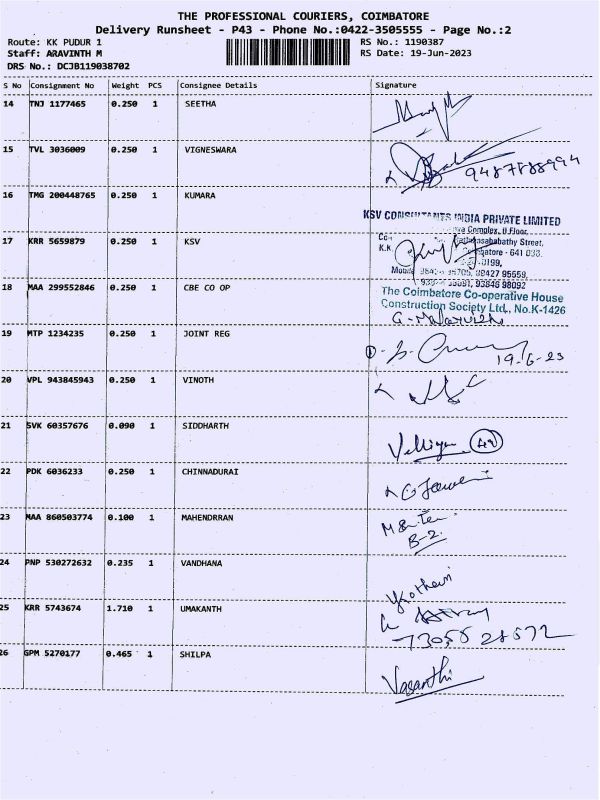 THE PROFESSIONAL COURIERS, COIMBATORE
Delivery Runsheet - P43 - Phone No.:0422-3505555 - Page No.:2
Route: KK PUDUR 1 RS No.: 1190387
Staff: ARAVINTH M RS Date: 19-Jun-2023
DRS No.: DCJB119038702
S No Consignment No Weight PCS Consignee Details Signature
14 TNJ 1177465 0.250 1 SEETHA
15 TVL 3036009 0.250 1 VIGNESWARA
9487588994
16 TMG 200448765 0.250 1 KUMARA
KSV CONSULTANTS INDIA PRIVATE LIMITED
Complex, II Floor,
17 KRR 5659879 0.250 1 KSV
Street,
K.K. 641 038.
Mobile 98427 95559,
93846 98092
18 MAA 299552846 0.250 1 CBE CO OP
The Coimbatore Co-operative House
Construction Society Ltd., No.K-1426
19 MTP 1234235 0.250 1 JOINT REG
19-6-23
20 VPL 943845943 0.250 1 VINOTH
21 SVK 60357676 0.090 1 SIDDHARTH
22 PDK 6036233 0.250 1 CHINNADURAI
23 MAA 860503774 0.100 1 MAHENDRRAN
B-2.
24 PNP 530272632 0.235 1 VANDHANA
Kothari
25 KRR 5743674 1.710 1 UMAKANTH
26 GPM 5270177 0.465 1 SHILPA
Vasanthi